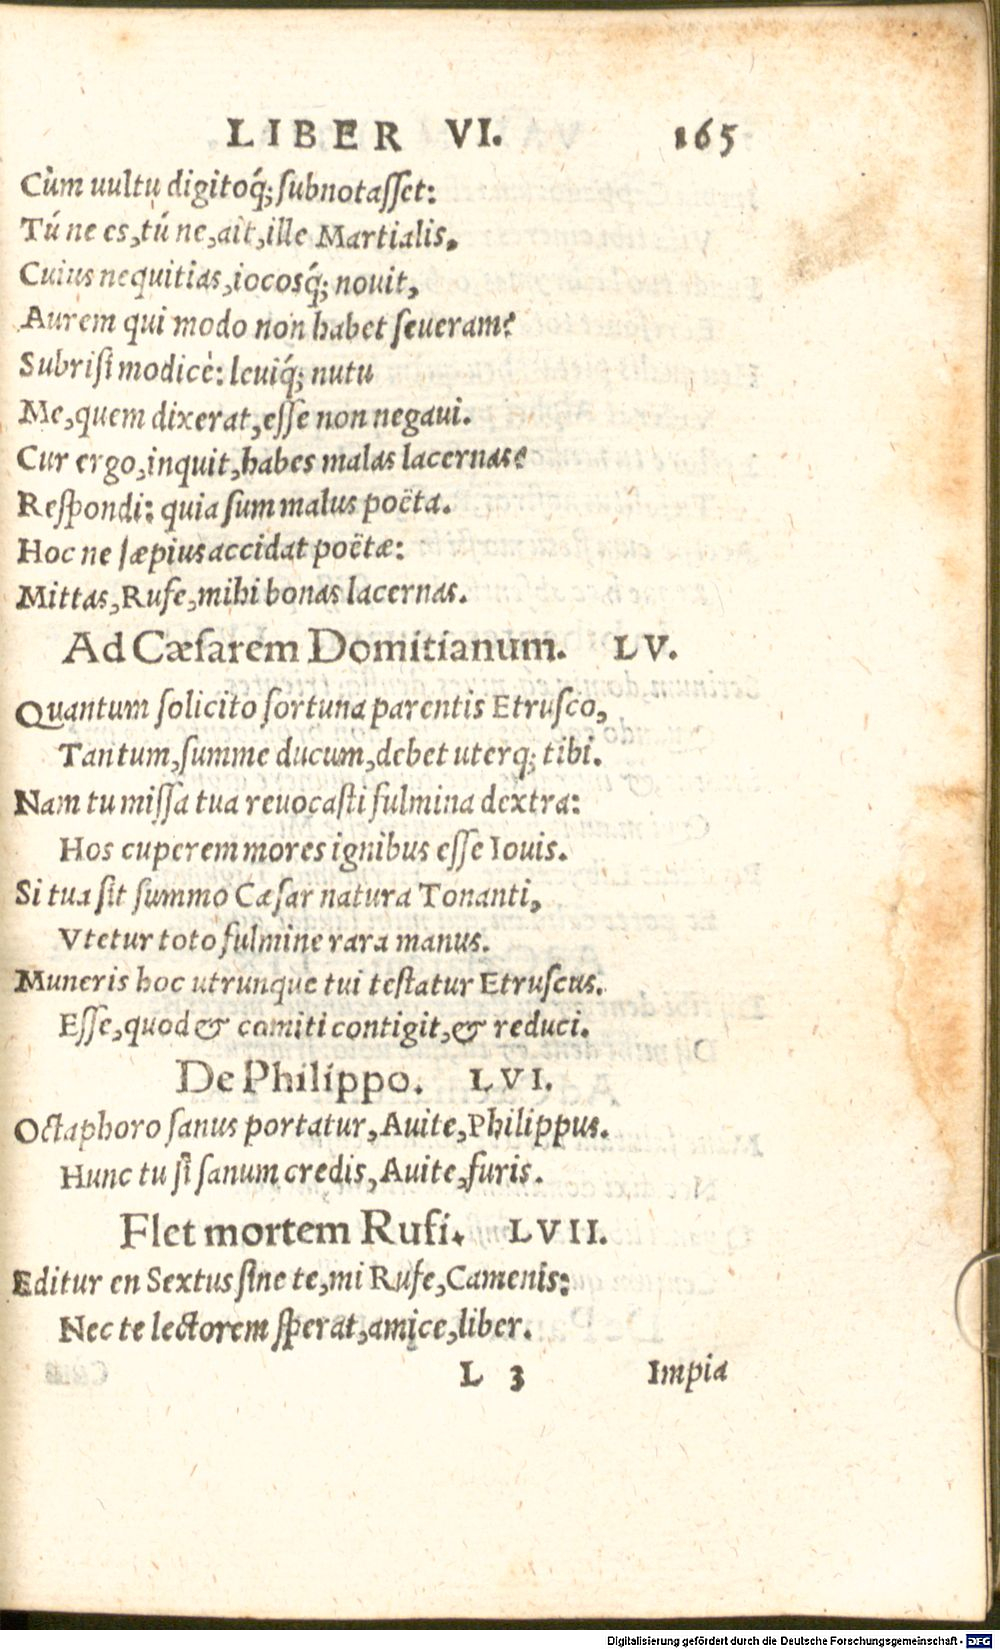 LIBER VI. 165
Cùm uultu digitoq́; subnotasset:
Tú ne es, tú ne, ait, ille Martialis.
Cuius nequitias, iocosq́; nouit,
Aurem qui modo non habet seueram?
Subrisi modicè: leuiq́; nutu
Me, quem dixerat, esse non negaui.
Cur ergo, inquit, habes malas lacernas?
Respondi: quia sum malus poëta.
Hoc ne sæpius accidat poëtæ:
Mittas, Rufe, mihi bonas lacernas.
Ad Cæsarem Domitianum. LV.
Quantum solicito fortuna parentis Etrusco,
Tantum, summe ducum, debet uterq; tibi.
Nam tu missa tua reuocasti fulmina dextra:
Hos cuperem mores ignibus esse Iouis.
Si tua sit summo Cæsar natura Tonanti,
Vtetur toto fulmine rara manus.
Muneris hoc utrunque tui testatur Etruscus.
Esse, quod & comiti contigit, & reduci.
De Philippo. LVI.
Octaphoro sanus portatur, Auite, Philippus.
Hunc tu si sanum credis, Auite, furis.
Flet mortem Rufi. LVII.
Editur en Sextus sine te, mi Rufe, Camenis:
Nec te lectorem sperat, amice, liber.
L 3 Impia
Digitalisierung gefördert durch die Deutsche Forschungsgemeinschaft - DFG